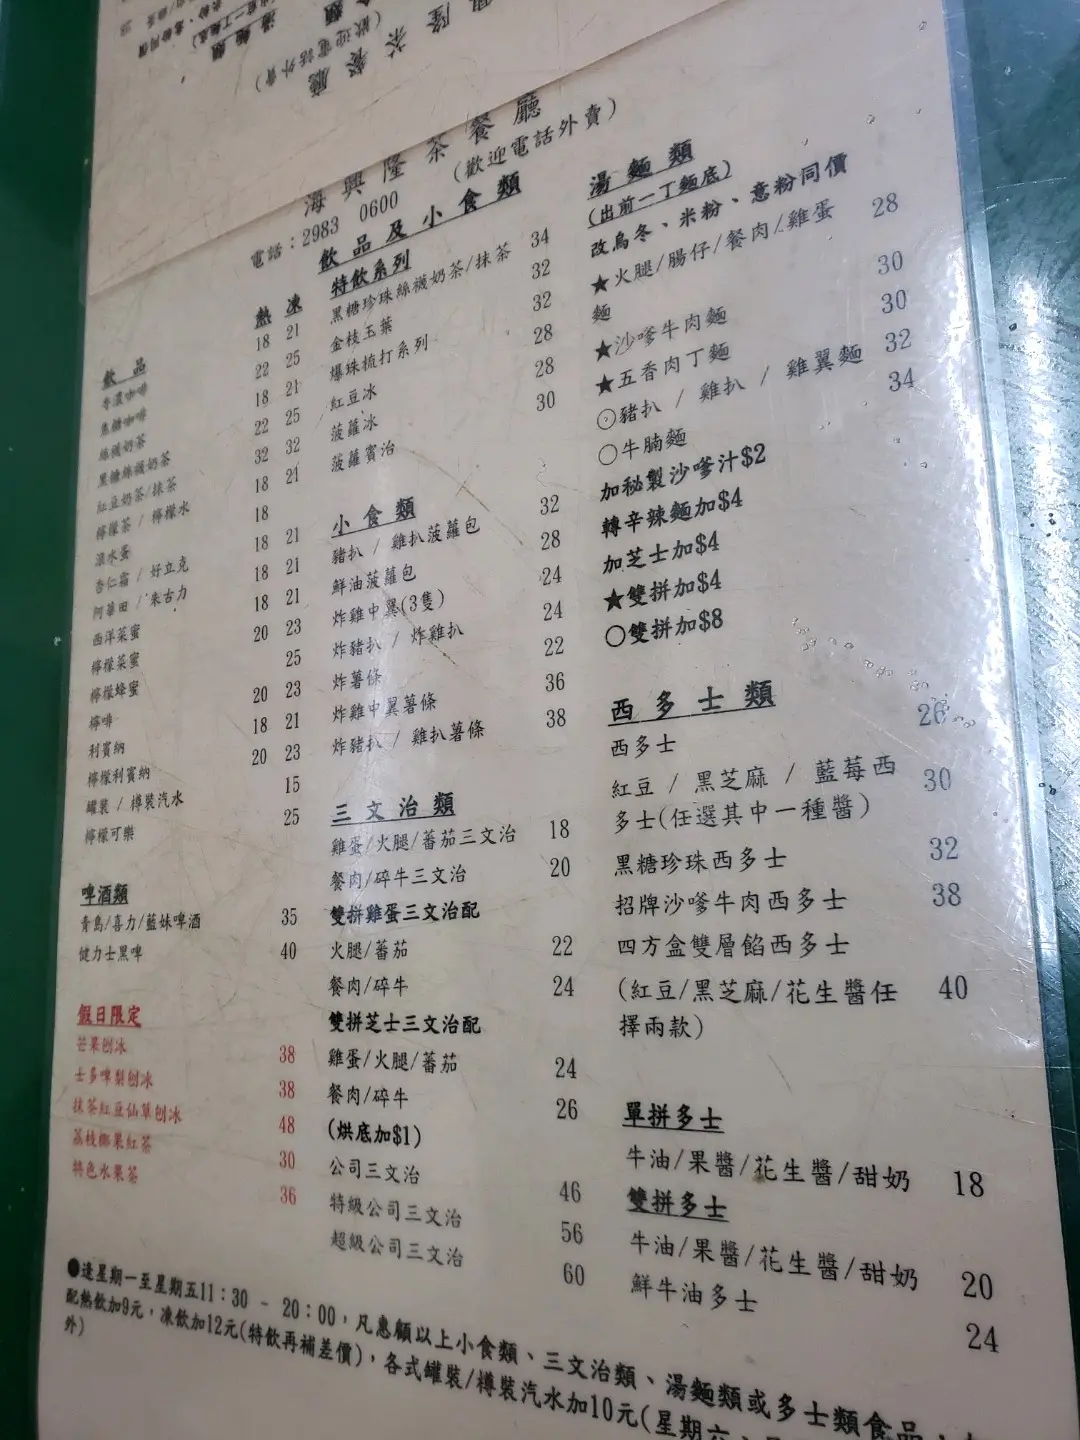 海興隆茶餐廳
電話：2983 0600 (歡迎電話外賣)
飲品及小食類
飲品 熱 凍
香濃咖啡 18 21
焦糖咖啡 22 25
絲襪奶茶 18 21
黑糖絲襪奶茶 22 25
紅豆奶茶/抹茶 32 32
檸檬茶 / 檸檬水 18 21
滾水蛋 18
杏仁霜 / 好立克 18 21
阿華田 / 朱古力 18 21
西洋菜蜜 18 21
檸檬菜蜜 20 23
檸檬蜂蜜 25
檸啡 20 23
利賓納 18 21
檸檬利賓納 20 23
罐裝 / 樽裝汽水 15
檸檬可樂 25
啤酒類
青島/喜力/藍妹啤酒 35
健力士黑啤 40
假日限定
芒果刨冰 38
士多啤梨刨冰 38
抹茶紅豆仙草刨冰 48
荔枝椰果紅茶 30
特色水果茶 36
特飲系列
黑糖珍珠絲襪奶茶/抹茶 34
金枝玉葉 32
爆珠梳打系列 32
紅豆冰 28
菠蘿冰 28
菠蘿賓治 30
小食類
豬扒 / 雞扒菠蘿包 32
鮮油菠蘿包 28
炸雞中翼(3隻) 24
炸豬扒 / 炸雞扒 24
炸薯條 22
炸雞中翼薯條 36
炸豬扒 / 雞扒薯條 38
三文治類
雞蛋/火腿/蕃茄三文治 18
餐肉/碎牛三文治 20
雙拼雞蛋三文治配
火腿/蕃茄 22
餐肉/碎牛 24
雙拼芝士三文治配
雞蛋/火腿/蕃茄 24
餐肉/碎牛 26
(烘底加$1)
公司三文治 46
特級公司三文治 56
超級公司三文治 60
湯麵類
(出前一丁麵底)
改烏冬、米粉、意粉同價
★火腿/腸仔/餐肉/雞蛋 28
麵
★沙嗲牛肉麵 30
★五香肉丁麵 30
○豬扒 / 雞扒 / 雞翼麵 32
○牛腩麵 34
加秘製沙嗲汁$2
轉辛辣麵加$4
加芝士加$4
★雙拼加$4
○雙拼加$8
西多士類
西多士 26
紅豆 / 黑芝麻 / 藍莓西
多士(任選其中一種醬) 30
黑糖珍珠西多士 32
招牌沙嗲牛肉西多士 38
四方盒雙層餡西多士
(紅豆/黑芝麻/花生醬任 40
擇兩款)
單拼多士
牛油/果醬/花生醬/甜奶 18
雙拼多士
牛油/果醬/花生醬/甜奶 20
鮮牛油多士 24
●逢星期一至星期五11：30 - 20：00，凡惠顧以上小食類、三文治類、湯麵類或多士類食品，
配熱飲加9元，凍飲加12元(特飲再補差價)，各式罐裝/樽裝汽水加10元(星期六、
外)